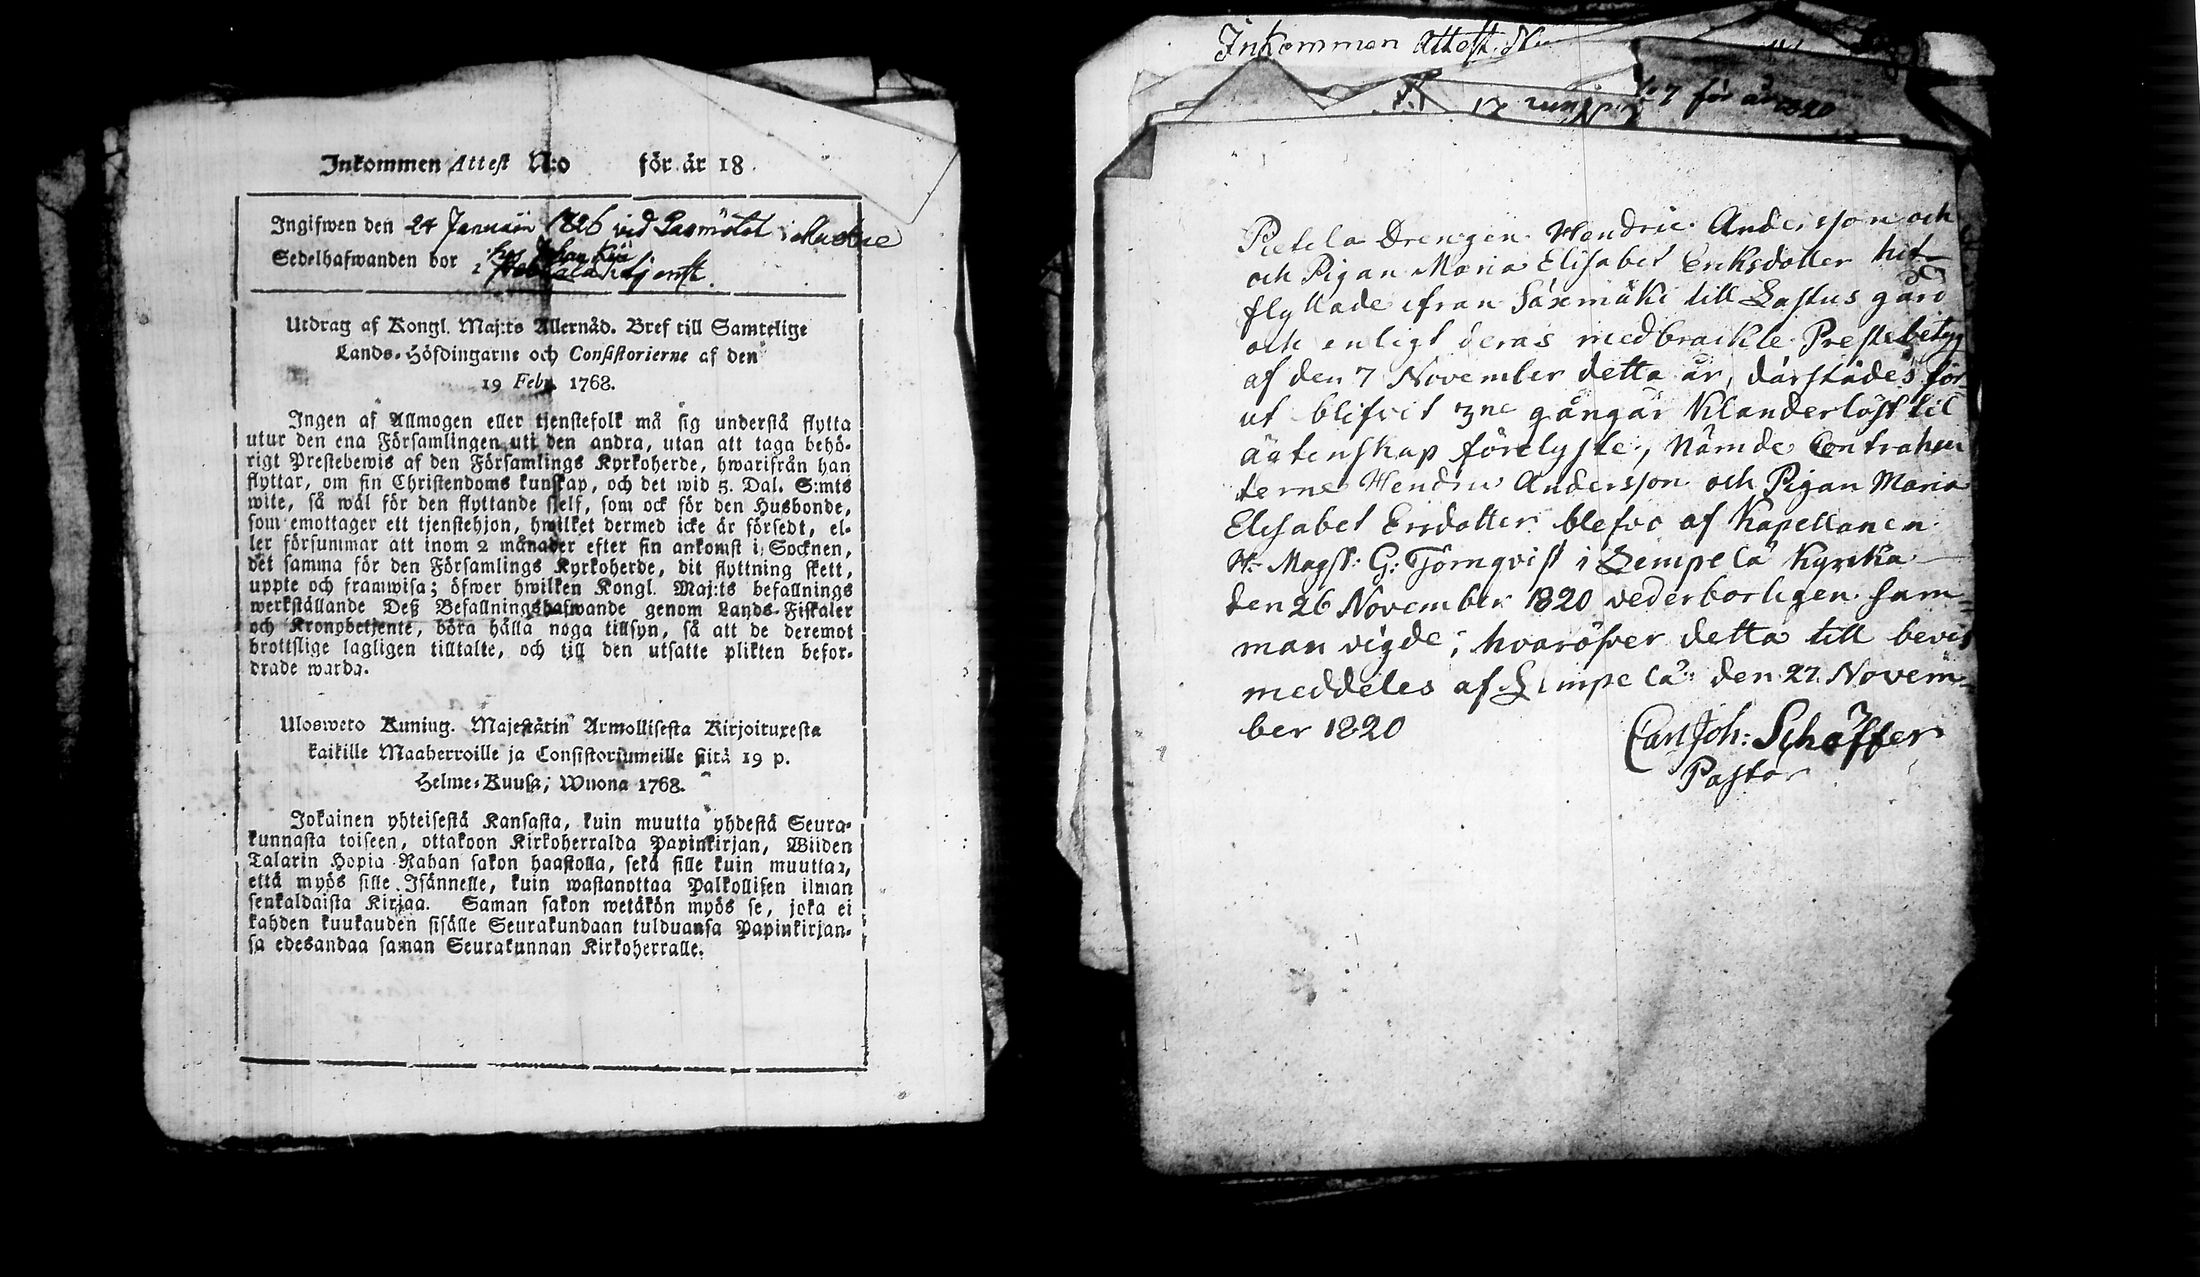 Inkommen Attest N:o för år 18
Ingifwen den 24 Januari 1826 vid Läsmötet i
Sedelhafwanden bor hos Johan
i tjenst.
Utdrag af Kongl. Maj:ts Allernåd. Bref till Samtelige
Lands-Höfdingarne och Consistorierne af den
19 Febr. 1768.
Ingen af Allmogen eller tjenstefolk må sig understå flytta
utur den ena Församlingen uti den andra, utan att taga behö-
rigt Prestebewis af den Församlings Kyrkoherde, hwarifrån han
flyttar, om sin Christendoms kunskap, och det wid 5. Dal. S:mts
wite, så wäl för den flyttande sjelf, som ock för den Husbonde,
som emottager ett tjenstehjon, hwilket dermed icke är försedt, el-
ler försummar att inom 2 månader efter sin ankomst i Socknen,
det samma för den Församlings Kyrkoherde, dit flyttning skett,
uppte och framwisa; öfwer hwilken Kongl. Maj:ts befallnings
werkställande Deß Befallningshafwande genom Lands-Fiskaler
och Kronobetjente, böra hålla noga tillsyn, så att de deremot
brottslige lagligen tilltalte, och till den utsatte plikten befor-
drade warda.
Ulosweto Kuning. Majestätin Armollisesta Kirjoituxesta
kaikille Maaherroille ja Consistoriumeille siitä 19 p.
Helme-Kuusa, Wuona 1768.
Jokainen yhteisestä Kansasta, kuin muutta yhdestä Seura-
kunnasta toiseen, ottakoon Kirkoherralda Papinkirjan, Wiiden
Talarin Hopia Rahan sakon haastolla, sekä sille kuin muuttaa,
että myös sille Isännelle, kuin wastanottaa Palkollisen ilman
senkaldaista Kirjaa. Saman sakon wetäkön myös se, joka ei
kahden kuukauden sisälle Seurakundaan tulduansa Papinkirjan-
sa edesandaa saman Seurakunnan Kirkoherralle.
Inkommen Attest. No
17 No 7 för år 1820
Pietela Drengen Hendric Andersson och
och Pigan Maria Elisabet Eriksdotter hit
flyttade ifran Säxmäki till Lastus gård
och enligt deras medbrackte Prestebetyg
af den 7 November detta år, därstädes för-
ut blifvit 3ne gångar Klanderlöst til
äctenskap förelyste, Nämde Contrahen
terne Hendric Andersson och Pigan Maria
Elisabet Ersdotter blefvo af Kapellanen
H: Magst: G: Törnqvist i Lempelä Kyrka
den 26 November 1820 vederborligen sam=
man vigde; hvaröfver detta till bevis
meddeles af Lempelä den 27 Novem-
ber 1820
Carl Joh: Schäffer
Pastor